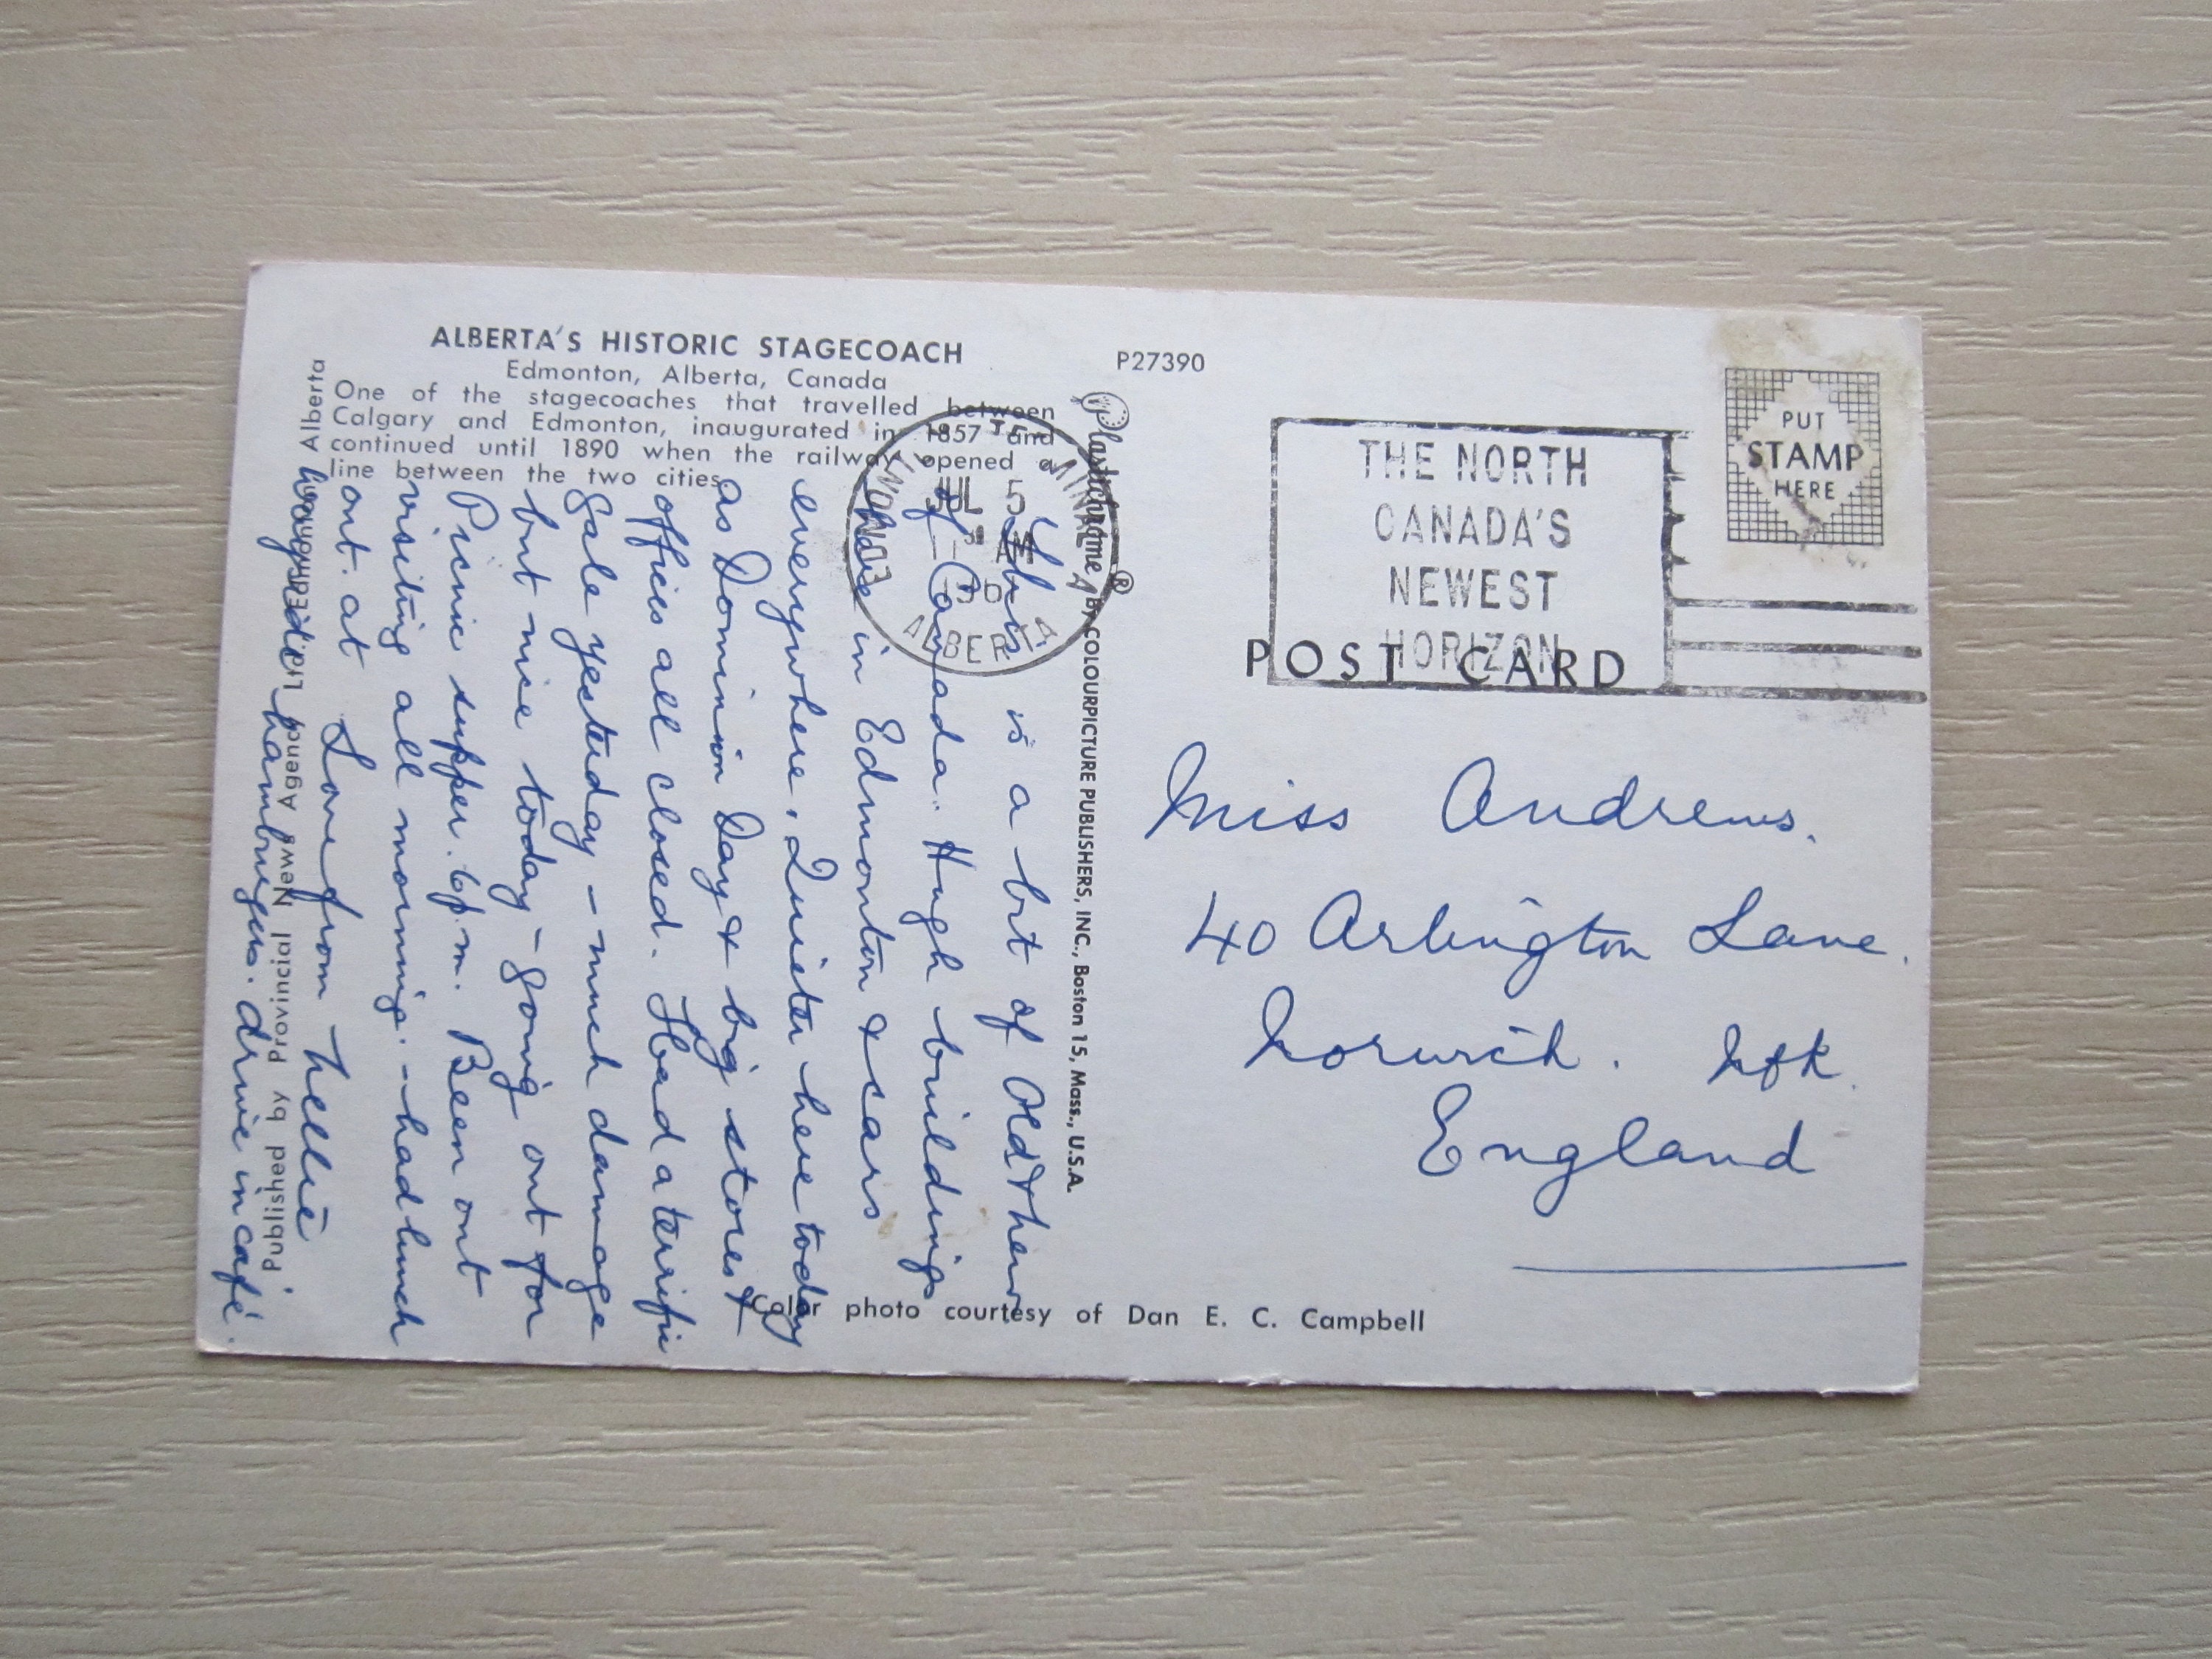 ALBERTA'S HISTORIC STAGECOACH
Edmonton, Alberta, Canada
One of the stagecoaches that travelled between
Calgary and Edmonton, inaugurated in 1857 and
continued until 1890 when the railway opened a
line between the two cities.
P27390
PUT
STAMP
HERE
THE NORTH
CANADA'S
NEWEST
HORIZON
POST CARD
EDMONTON
JUL 5
AM
ALBERTA
Plastichrome ®
BY COLOURPICTURE PUBLISHERS, INC., Boston 15, Mass., U.S.A.
This is a bit of Old
of Canada. Hugh buildings
here in Edmonton & cars
everywhere. Quieter here today
as Dominion Day & big stores &
offices all closed. Had a terrific
gale yesterday - much damage
but nice today - going out for
Picnic supper. 6p.m. Been out
visiting all morning. - had lunch
out. at
Love from Nellie
hamburgers. drive in café.
Published by Provincial News Agency Ltd., Edmonton, Alberta
Miss Andrews.
40 Arlington Lane.
Norwich. Nfk.
England
Color photo courtesy of Dan E. C. Campbell